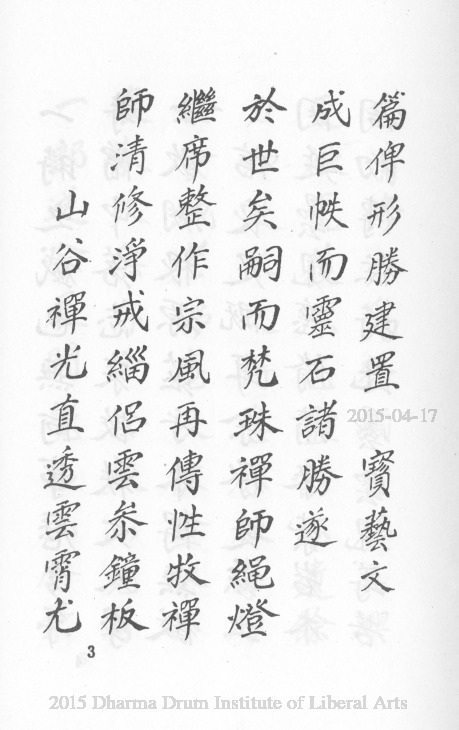 篇俾形勝建置 寶藝文
成巨帙而靈石諸勝遂
於世矣嗣而梵珠禪師繩燈
繼席整作宗風再傳性牧禪
師清修淨戒緇侶雲叅鐘板
山谷禪光直透雲霄尤
3
2015-04-17
2015 Dharma Drum Institute of Liberal Arts